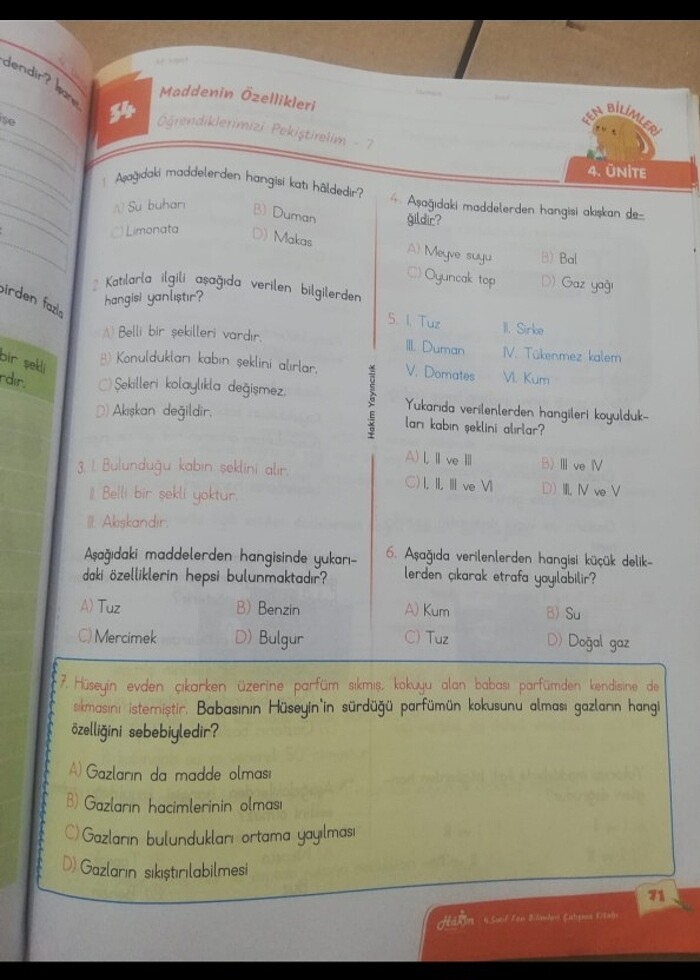 dendir? İşaret
işe
birden fazla
bir şekli
rdır.
34
Maddenin Özellikleri
Öğrendiklerimizi Pekiştirelim - 7
FEN BİLİMLERİ
4. ÜNİTE
1. Aşağıdaki maddelerden hangisi katı hâldedir?
A) Su buharı B) Duman
C) Limonata D) Makas
2. Katılarla ilgili aşağıda verilen bilgilerden
hangisi yanlıştır?
A) Belli bir şekilleri vardır.
B) Konuldukları kabın şeklini alırlar.
C) Şekilleri kolaylıkla değişmez.
D) Akışkan değildir.
3. I. Bulunduğu kabın şeklini alır.
II. Belli bir şekli yoktur.
III. Akışkandır.
Aşağıdaki maddelerden hangisinde yukarı-
daki özelliklerin hepsi bulunmaktadır?
A) Tuz B) Benzin
C) Mercimek D) Bulgur
Hakim Yayıncılık
4. Aşağıdaki maddelerden hangisi akışkan de-
ğildir?
A) Meyve suyu B) Bal
C) Oyuncak top D) Gaz yağı
5. I. Tuz II. Sirke
III. Duman IV. Tükenmez kalem
V. Domates VI. Kum
Yukarıda verilenlerden hangileri koyulduk-
ları kabın şeklini alırlar?
A) I, II ve III B) III ve IV
C) I, II, III ve VI D) III, IV ve V
6. Aşağıda verilenlerden hangisi küçük delik-
lerden çıkarak etrafa yayılabilir?
A) Kum B) Su
C) Tuz D) Doğal gaz
7. Hüseyin evden çıkarken üzerine parfüm sıkmış, kokuyu alan babası parfümden kendisine de
sıkmasını istemiştir. Babasının Hüseyin'in sürdüğü parfümün kokusunu alması gazların hangi
özelliğini sebebiyledir?
A) Gazların da madde olması
B) Gazların hacimlerinin olması
C) Gazların bulundukları ortama yayılması
D) Gazların sıkıştırılabilmesi
Hakim 4. Sınıf Fen Bilimleri Çalışma Kitabı
71